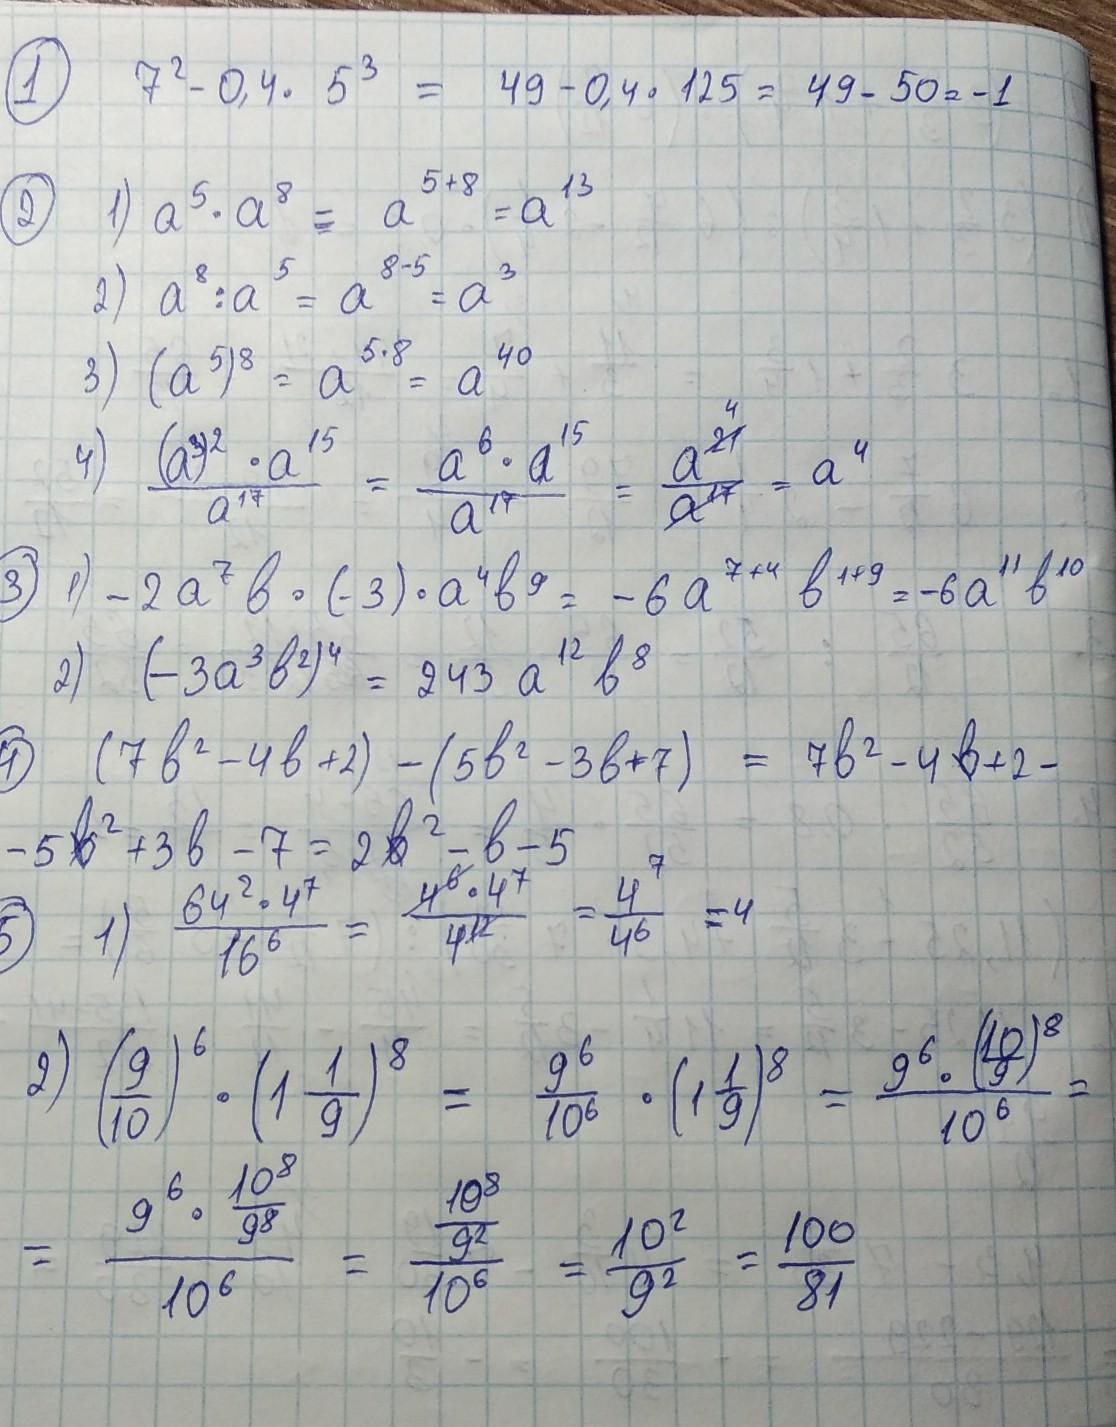 ① 7² - 0,4 · 5³ = 49 - 0,4 · 125 = 49 - 50 = -1
② 1) a⁵ · a⁸ = a⁵⁺⁸ = a¹³
2) a⁸ : a⁵ = a⁸⁻⁵ = a³
3) (a⁵)⁸ = a^(5·8) = a⁴⁰
4) ((a³)² · a¹⁵)/a¹⁷ = (a⁶ · a¹⁵)/a¹⁷ = a²¹/a¹⁷ = a⁴
③ 1) -2a⁷b · (-3) · a⁴b⁹ = -6a⁷⁺⁴ b¹⁺⁹ = -6a¹¹b¹⁰
2) (-3a³b²)⁴ = 243 a¹² b⁸
④ (7b² - 4b + 2) - (5b² - 3b + 7) = 7b² - 4b + 2 -
- 5b² + 3b - 7 = 2b² - b - 5
⑤ 1) (64² · 4⁷)/16⁶ = (4⁶ · 4⁷)/4¹² = 4⁷/4⁶ = 4
2) (9/10)⁶ · (1 1/9)⁸ = 9⁶/10⁶ · (1 1/9)⁸ = (9⁶ · (10/9)⁸)/10⁶ =
= (9⁶ · 10⁸/9⁸)/10⁶ = (10⁸/9²)/10⁶ = 10²/9² = 100/81